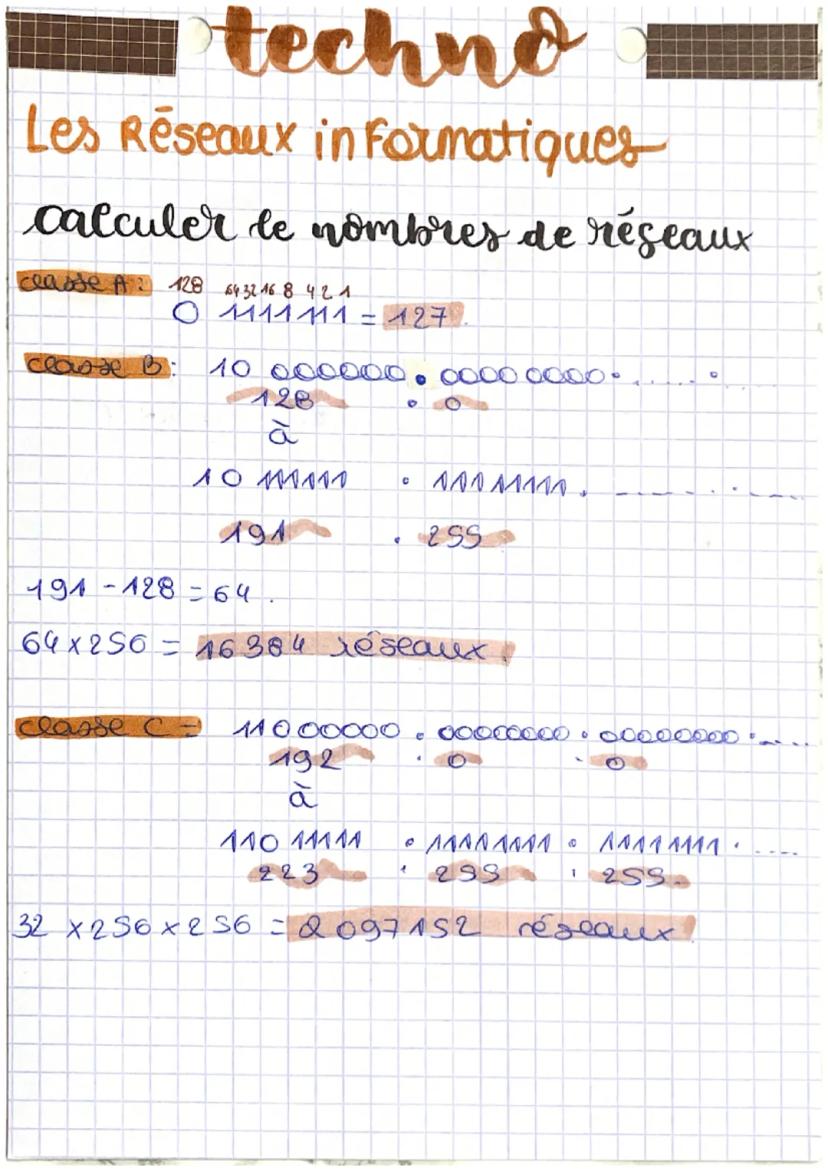 techno
Les Réseaux informatiques
calculer le nombres de réseaux
classe A: 128 64 32 16 8 4 2 1
0 1111111 = 127
classe B: 10 000000. 00000000. ..... .
128 . 0
à
10 111111 . 11111111. ..... .
191 . 255
191 - 128 = 64.
64 x 256 = 16384 réseaux.
classe C = 11000000 . 00000000 . 00000000 . ....
192 . 0 . 0
à
110 11111 . 11111111 . 11111111 . ....
223 . 255 . 255.
32 x 256 x 256 = 2097152 réseaux